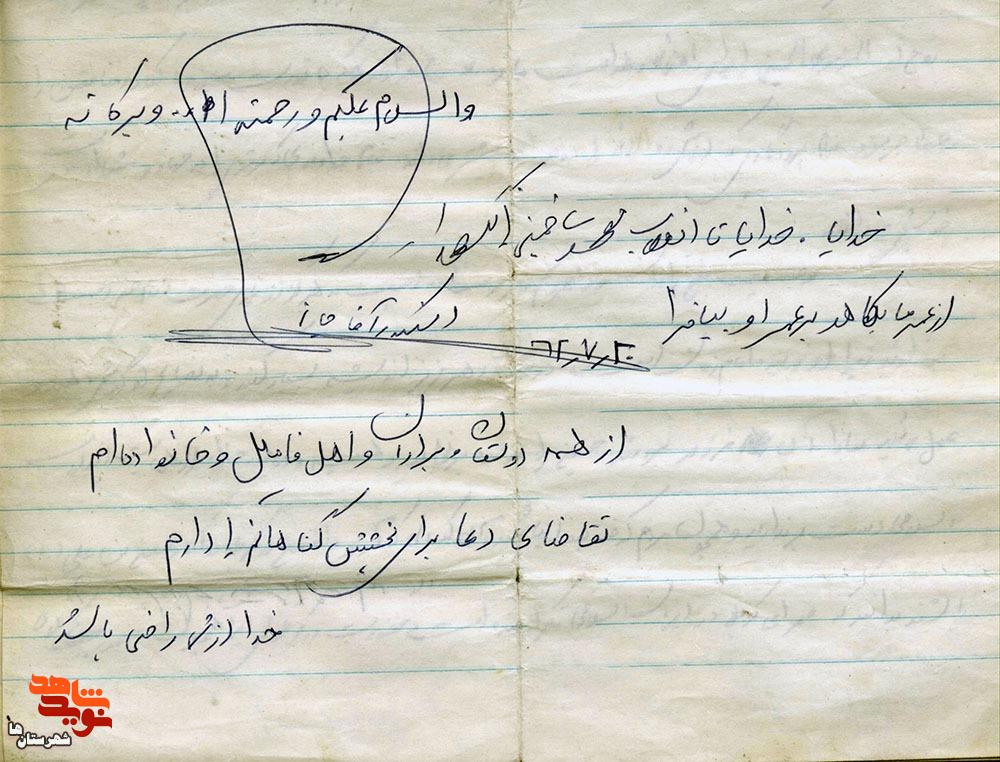 والسلام علیکم و رحمته ا... و برکاته
خدایا . خدایا تا انقلاب مهدی خمینی را نگهدار
از عمر ما بکاهد بر عمر او بیافزا
اسکندر آقاخانی
۶۲٫۷٫۲۰
از همه دوستان و برادران و اهل فامیل و خانواده‌ام
تقاضای دعا برای بخشش گناهانم را دارم
خدا از شما راضی باشد
نوید شاهد
شهرستان‌ها